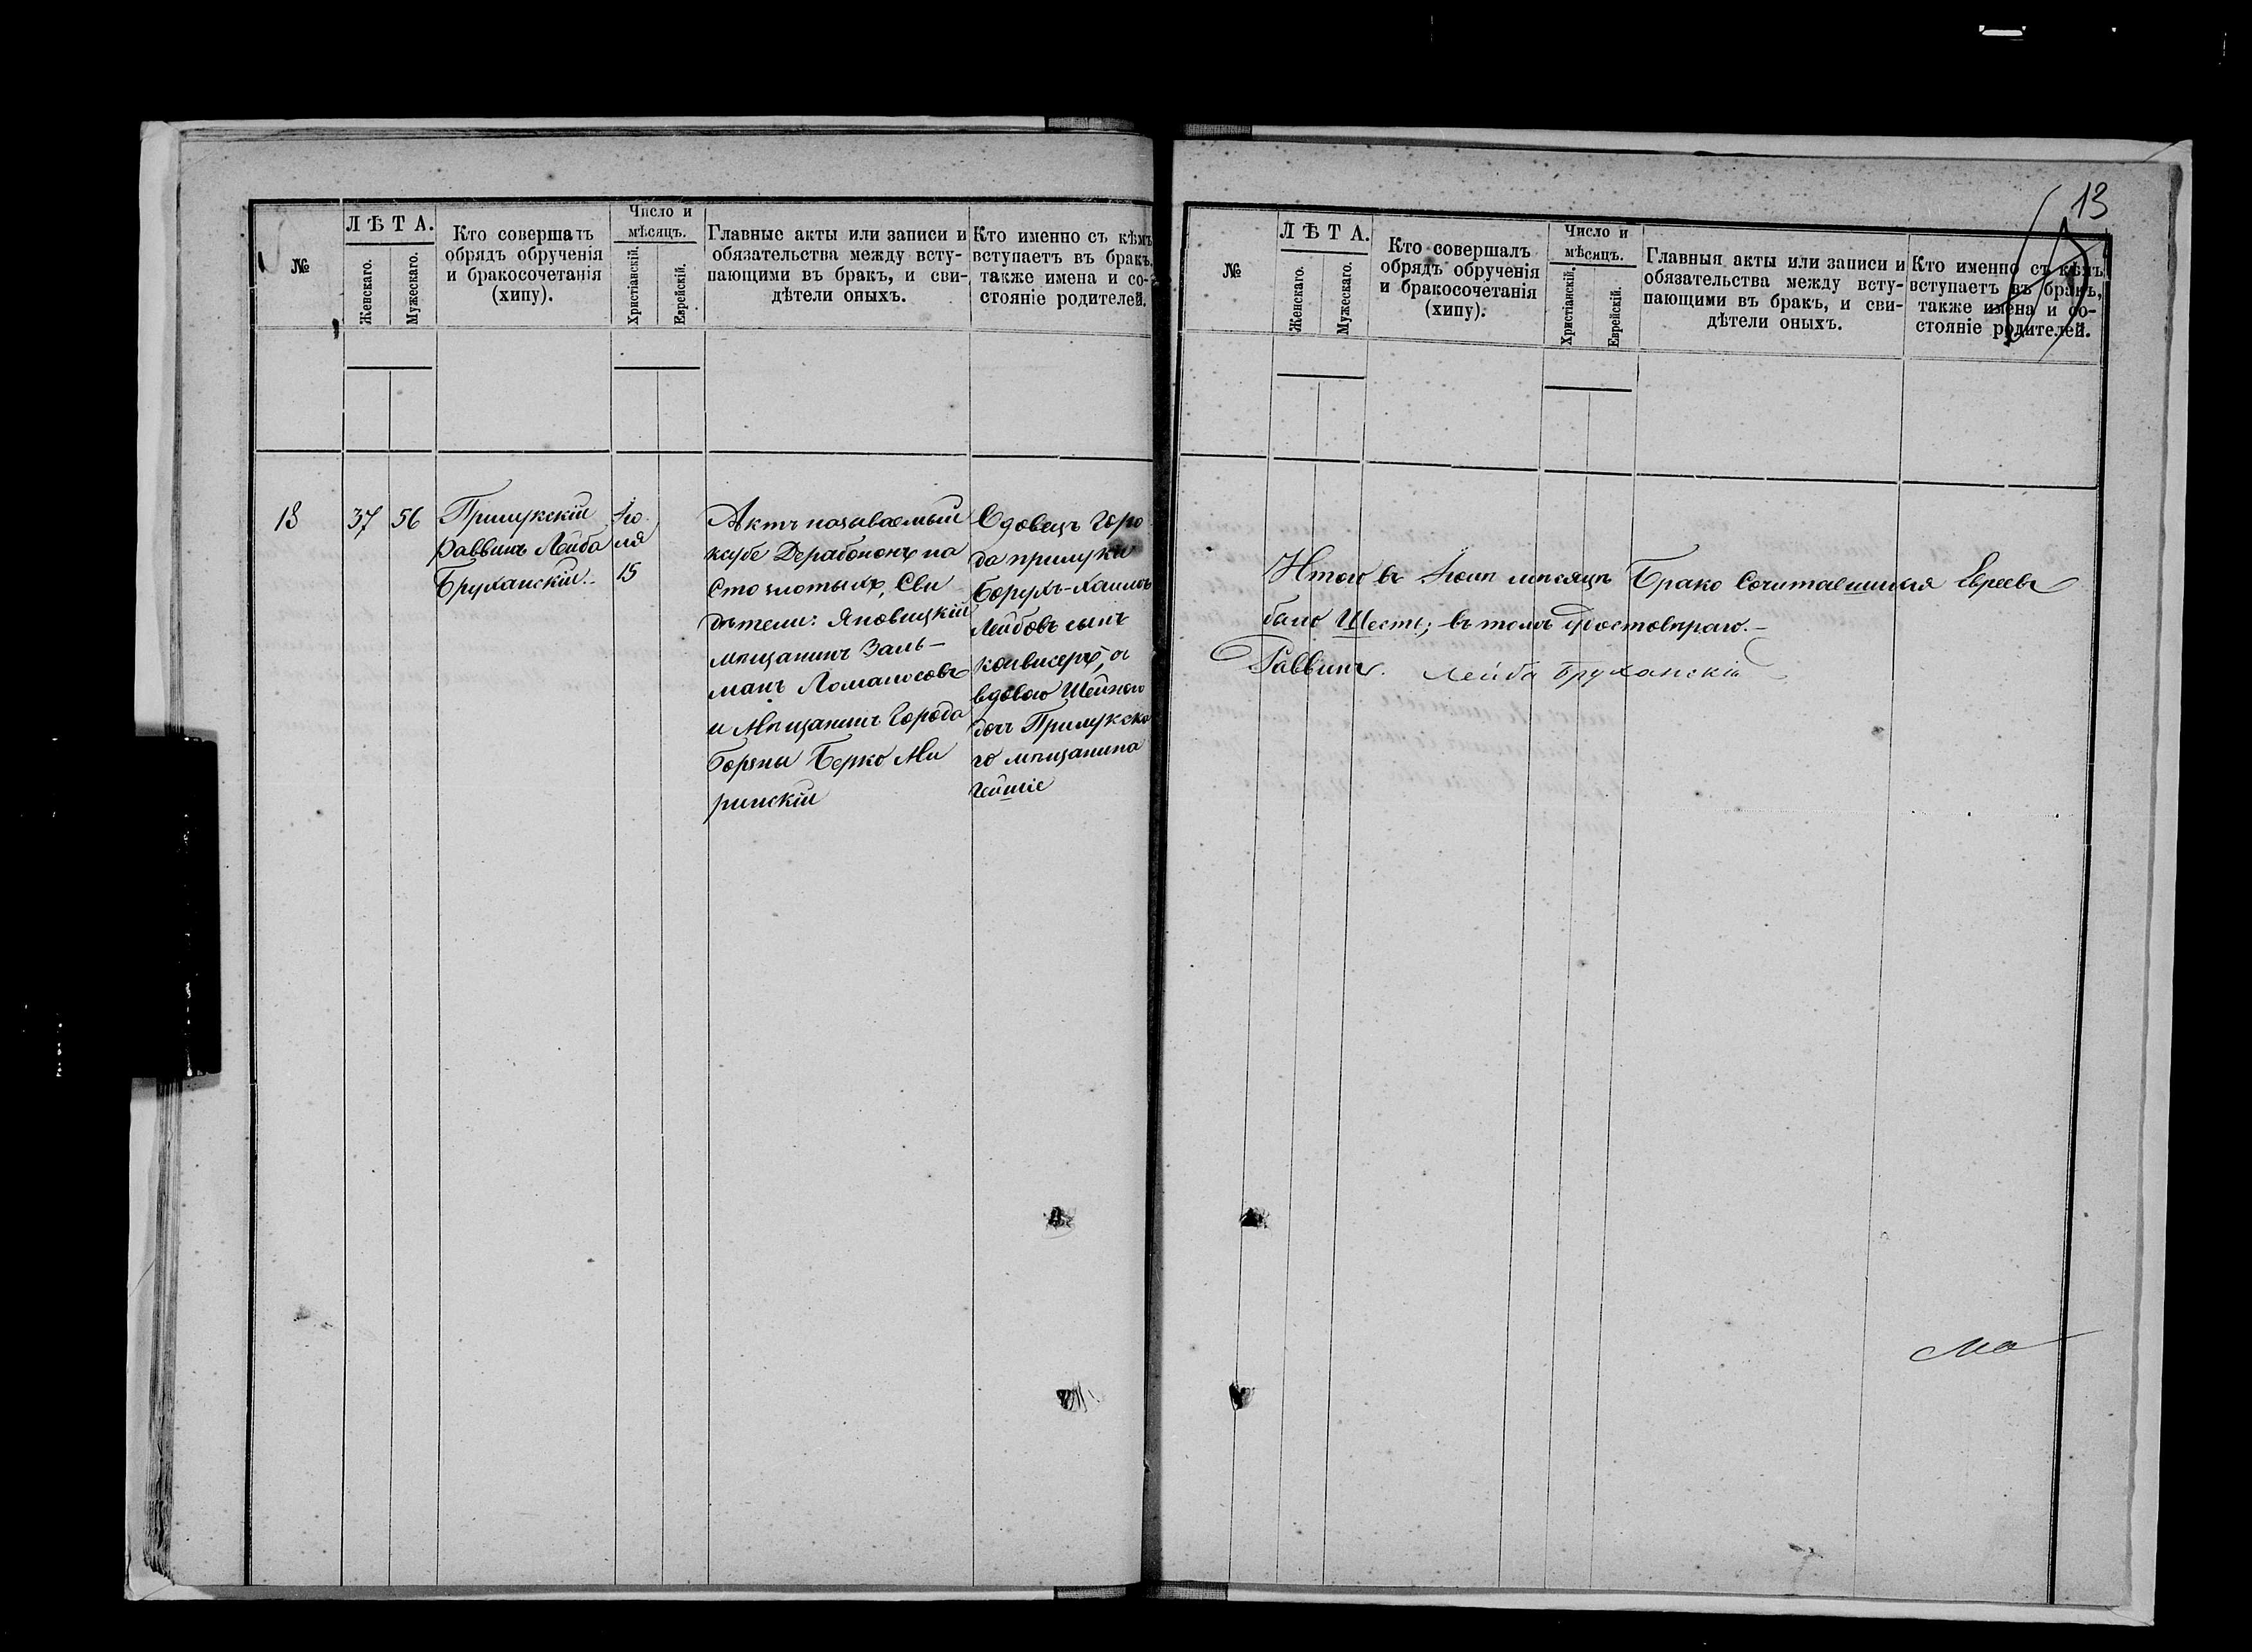 №
ЛѢТА.
Женскаго.
Мужескаго.
Кто совершалъ
обрядъ обрученія
и бракосочетанія
(хипу).
Число и
мѣсяцъ.
Христіанскій.
Еврейскій.
Главные акты или записи и
обязательства между всту-
пающими въ бракъ, и сви-
дѣтели оныхъ.
Кто именно съ кѣмъ
вступаетъ въ бракъ,
также имена и со-
стояніе родителей.
13
37
56
Прилукскій
Раввинъ Лейба
Бруханскій
15
Актъ называемый
Дерабононъ на
Сто злотыхъ, Сви
дѣтели:
мѣщанинъ Заль-
манъ Ломаносовъ
и Мѣщанинъ Города
Борзны Берко Ми
ринскій
Вдовецъ Горо
да прилуки
Борухъ-Хаимъ
Лейбовъ сынъ
а
вдовою
доч Прилукска
го мѣщанина
13
№
ЛѢТА.
Женскаго.
Мужескаго.
Кто совершалъ
обрядъ обрученія
и бракосочетанія
(хипу).
Число и
мѣсяцъ.
Христіанскій.
Еврейскій.
Главныя акты или записи и
обязательства между всту-
пающими въ бракъ, и сви-
дѣтели оныхъ.
Кто именно съ кѣмъ
вступаетъ въ бракъ,
также имена и со-
стояніе родителей.
Итого въ мѣсяцѣ Брако Сочитавшихся Евреевъ
было Шесть; въ томъ
Раввинъ. Лейба Бруханскій